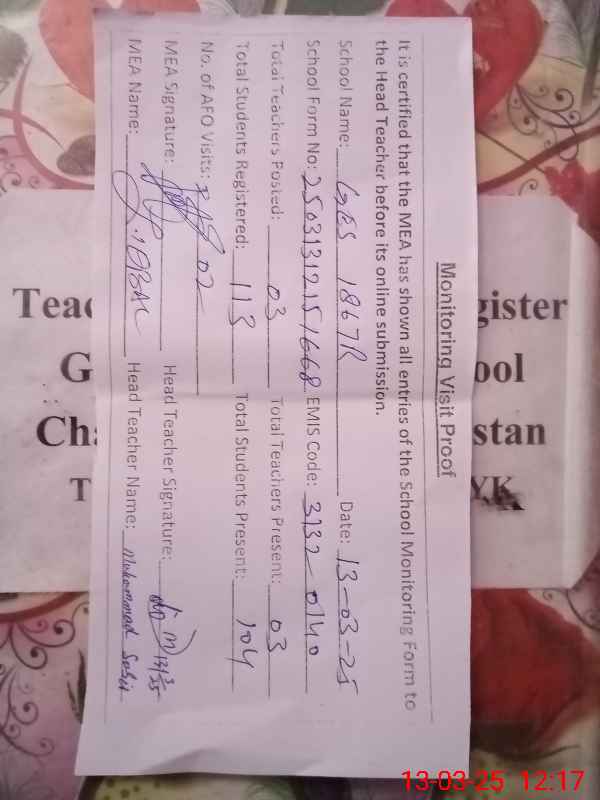 Monitoring Visit Proof
It is certified that the MEA has shown all entries of the School Monitoring Form to
the Head Teacher before its online submission.
School Name: GES 186 7R Date: 13-03-25
School Form No: 2503131215 1668 EMIS Code: 3132-0140
Total Teachers Posted: 03 Total Teachers Present: 03
Total Students Registered: 113 Total Students Present: 104
No. of AFO Visits: 02
MEA Signature: Head Teacher Signature:
MEA Name: J. IQBAL Head Teacher Name: Muhammad Sabir
Teac gister
G ool
Cha stan
T YK
13-03-25 12:17